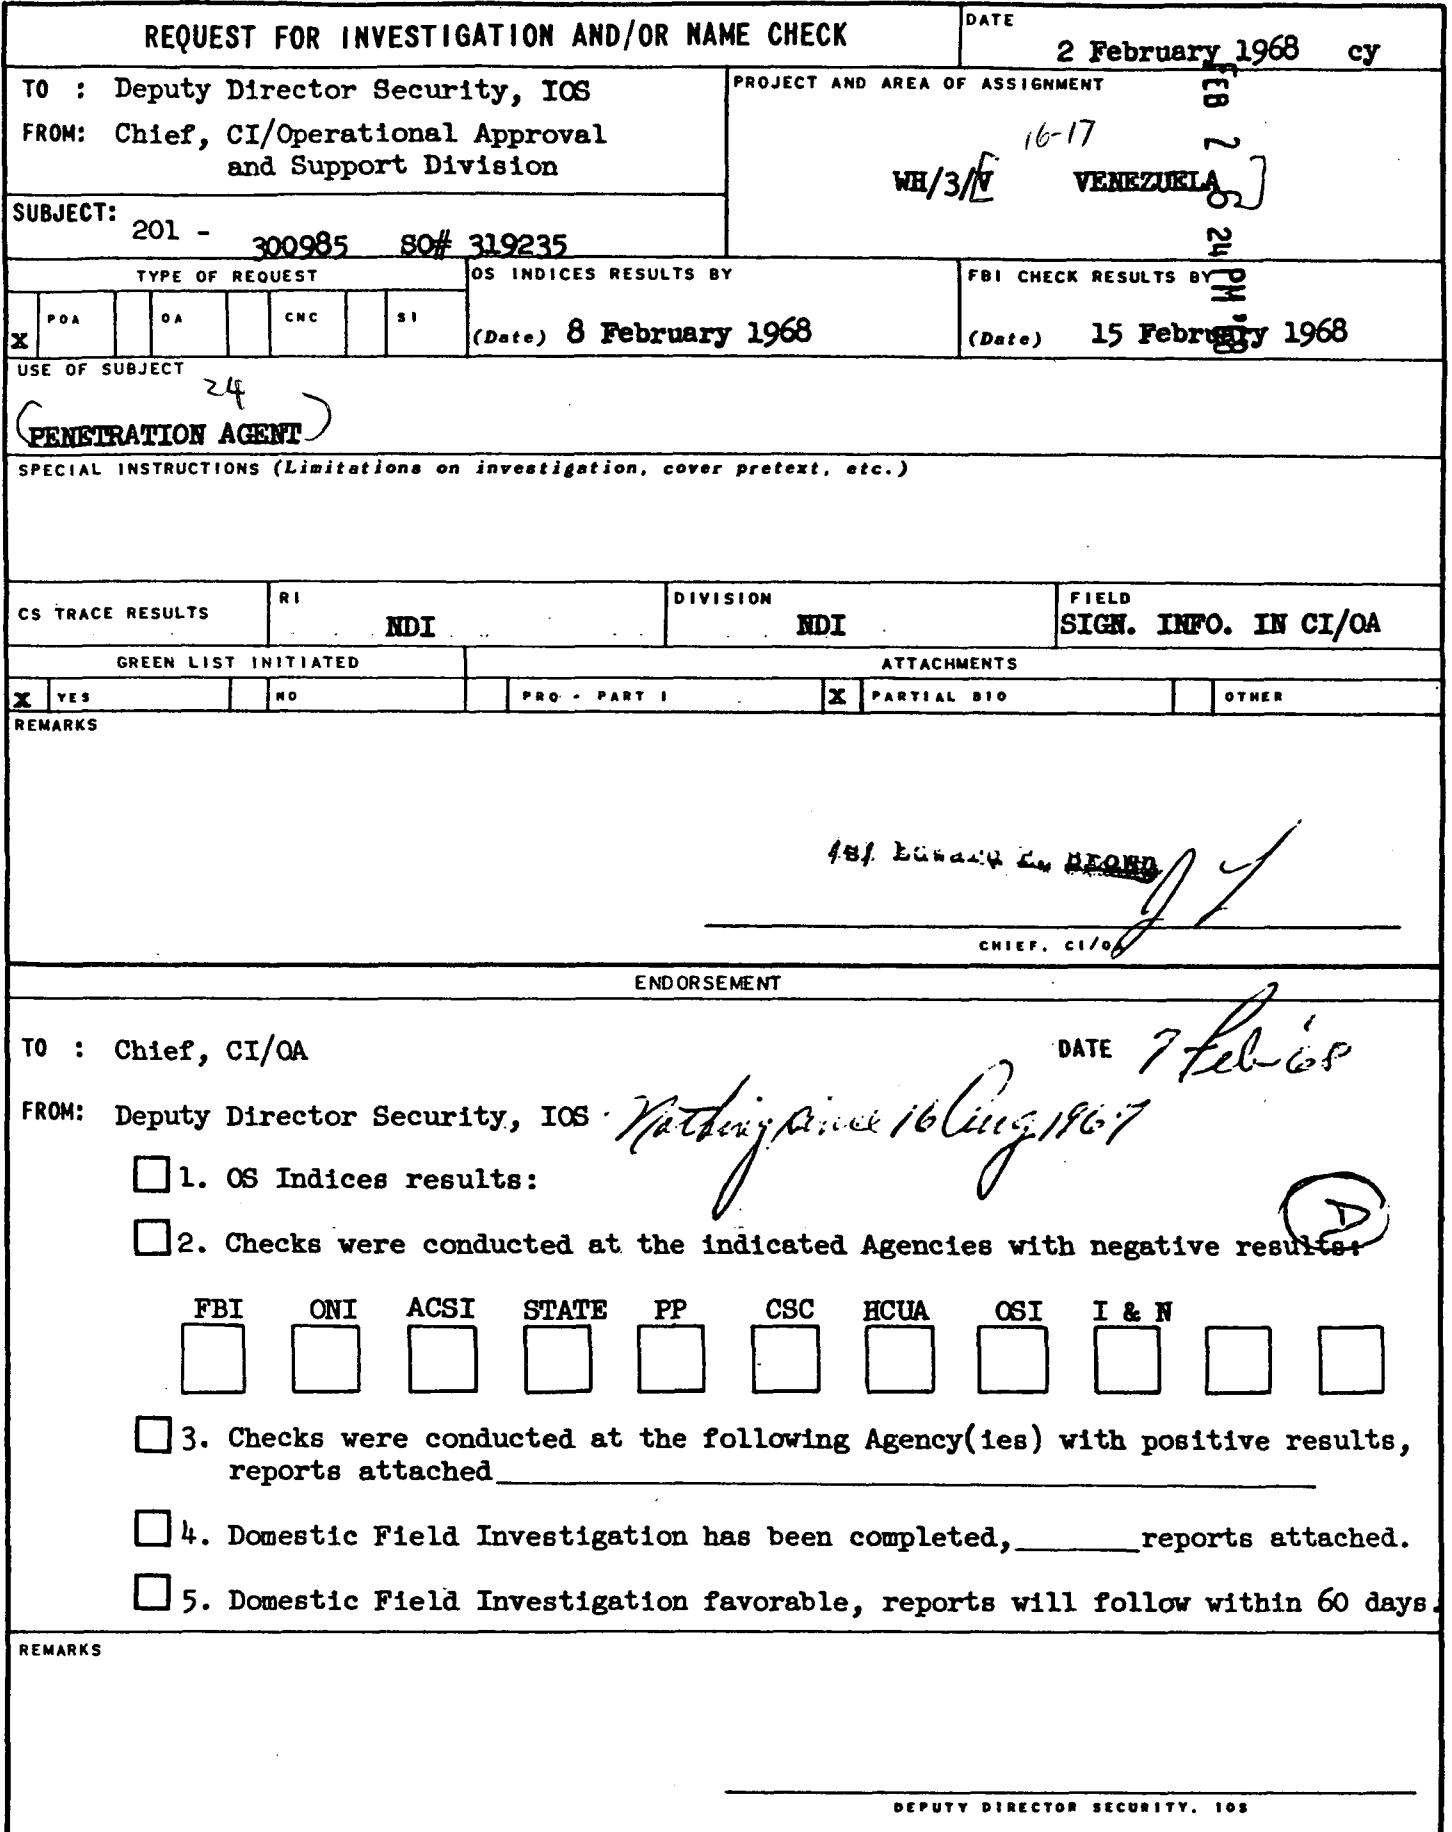 REQUEST FOR INVESTIGATION AND/OR NAME CHECK
DATE
2 February 1968 cy
TO : Deputy Director Security, IOS
FROM: Chief, CI/Operational Approval
and Support Division
PROJECT AND AREA OF ASSIGNMENT
16-17
WH/3/V VENEZUELA
FEB 2 6 24 PM '68
SUBJECT:
201 - 300985 SO# 319235
TYPE OF REQUEST
X POA OA CNC SI
OS INDICES RESULTS BY
(Date) 8 February 1968
FBI CHECK RESULTS BY
(Date) 15 February 1968
USE OF SUBJECT
24
(PENETRATION AGENT)
SPECIAL INSTRUCTIONS (Limitations on investigation, cover pretext, etc.)
CS TRACE RESULTS
RI
NDI
DIVISION
NDI
FIELD
SIGN. INFO. IN CI/OA
GREEN LIST INITIATED
X YES NO
ATTACHMENTS
PRQ - PART I X PARTIAL BIO OTHER
REMARKS
/s/ Edward Brown
CHIEF, CI/OA
ENDORSEMENT
TO : Chief, CI/OA
DATE 7 Feb 68
FROM: Deputy Director Security, IOS
Nothing since 16 Aug 1967
1. OS Indices results:
D
2. Checks were conducted at the indicated Agencies with negative results:
FBI ONI ACSI STATE PP CSC HCUA OSI I & N
3. Checks were conducted at the following Agency(ies) with positive results,
reports attached
4. Domestic Field Investigation has been completed, reports attached.
5. Domestic Field Investigation favorable, reports will follow within 60 days.
REMARKS
DEPUTY DIRECTOR SECURITY, IOS